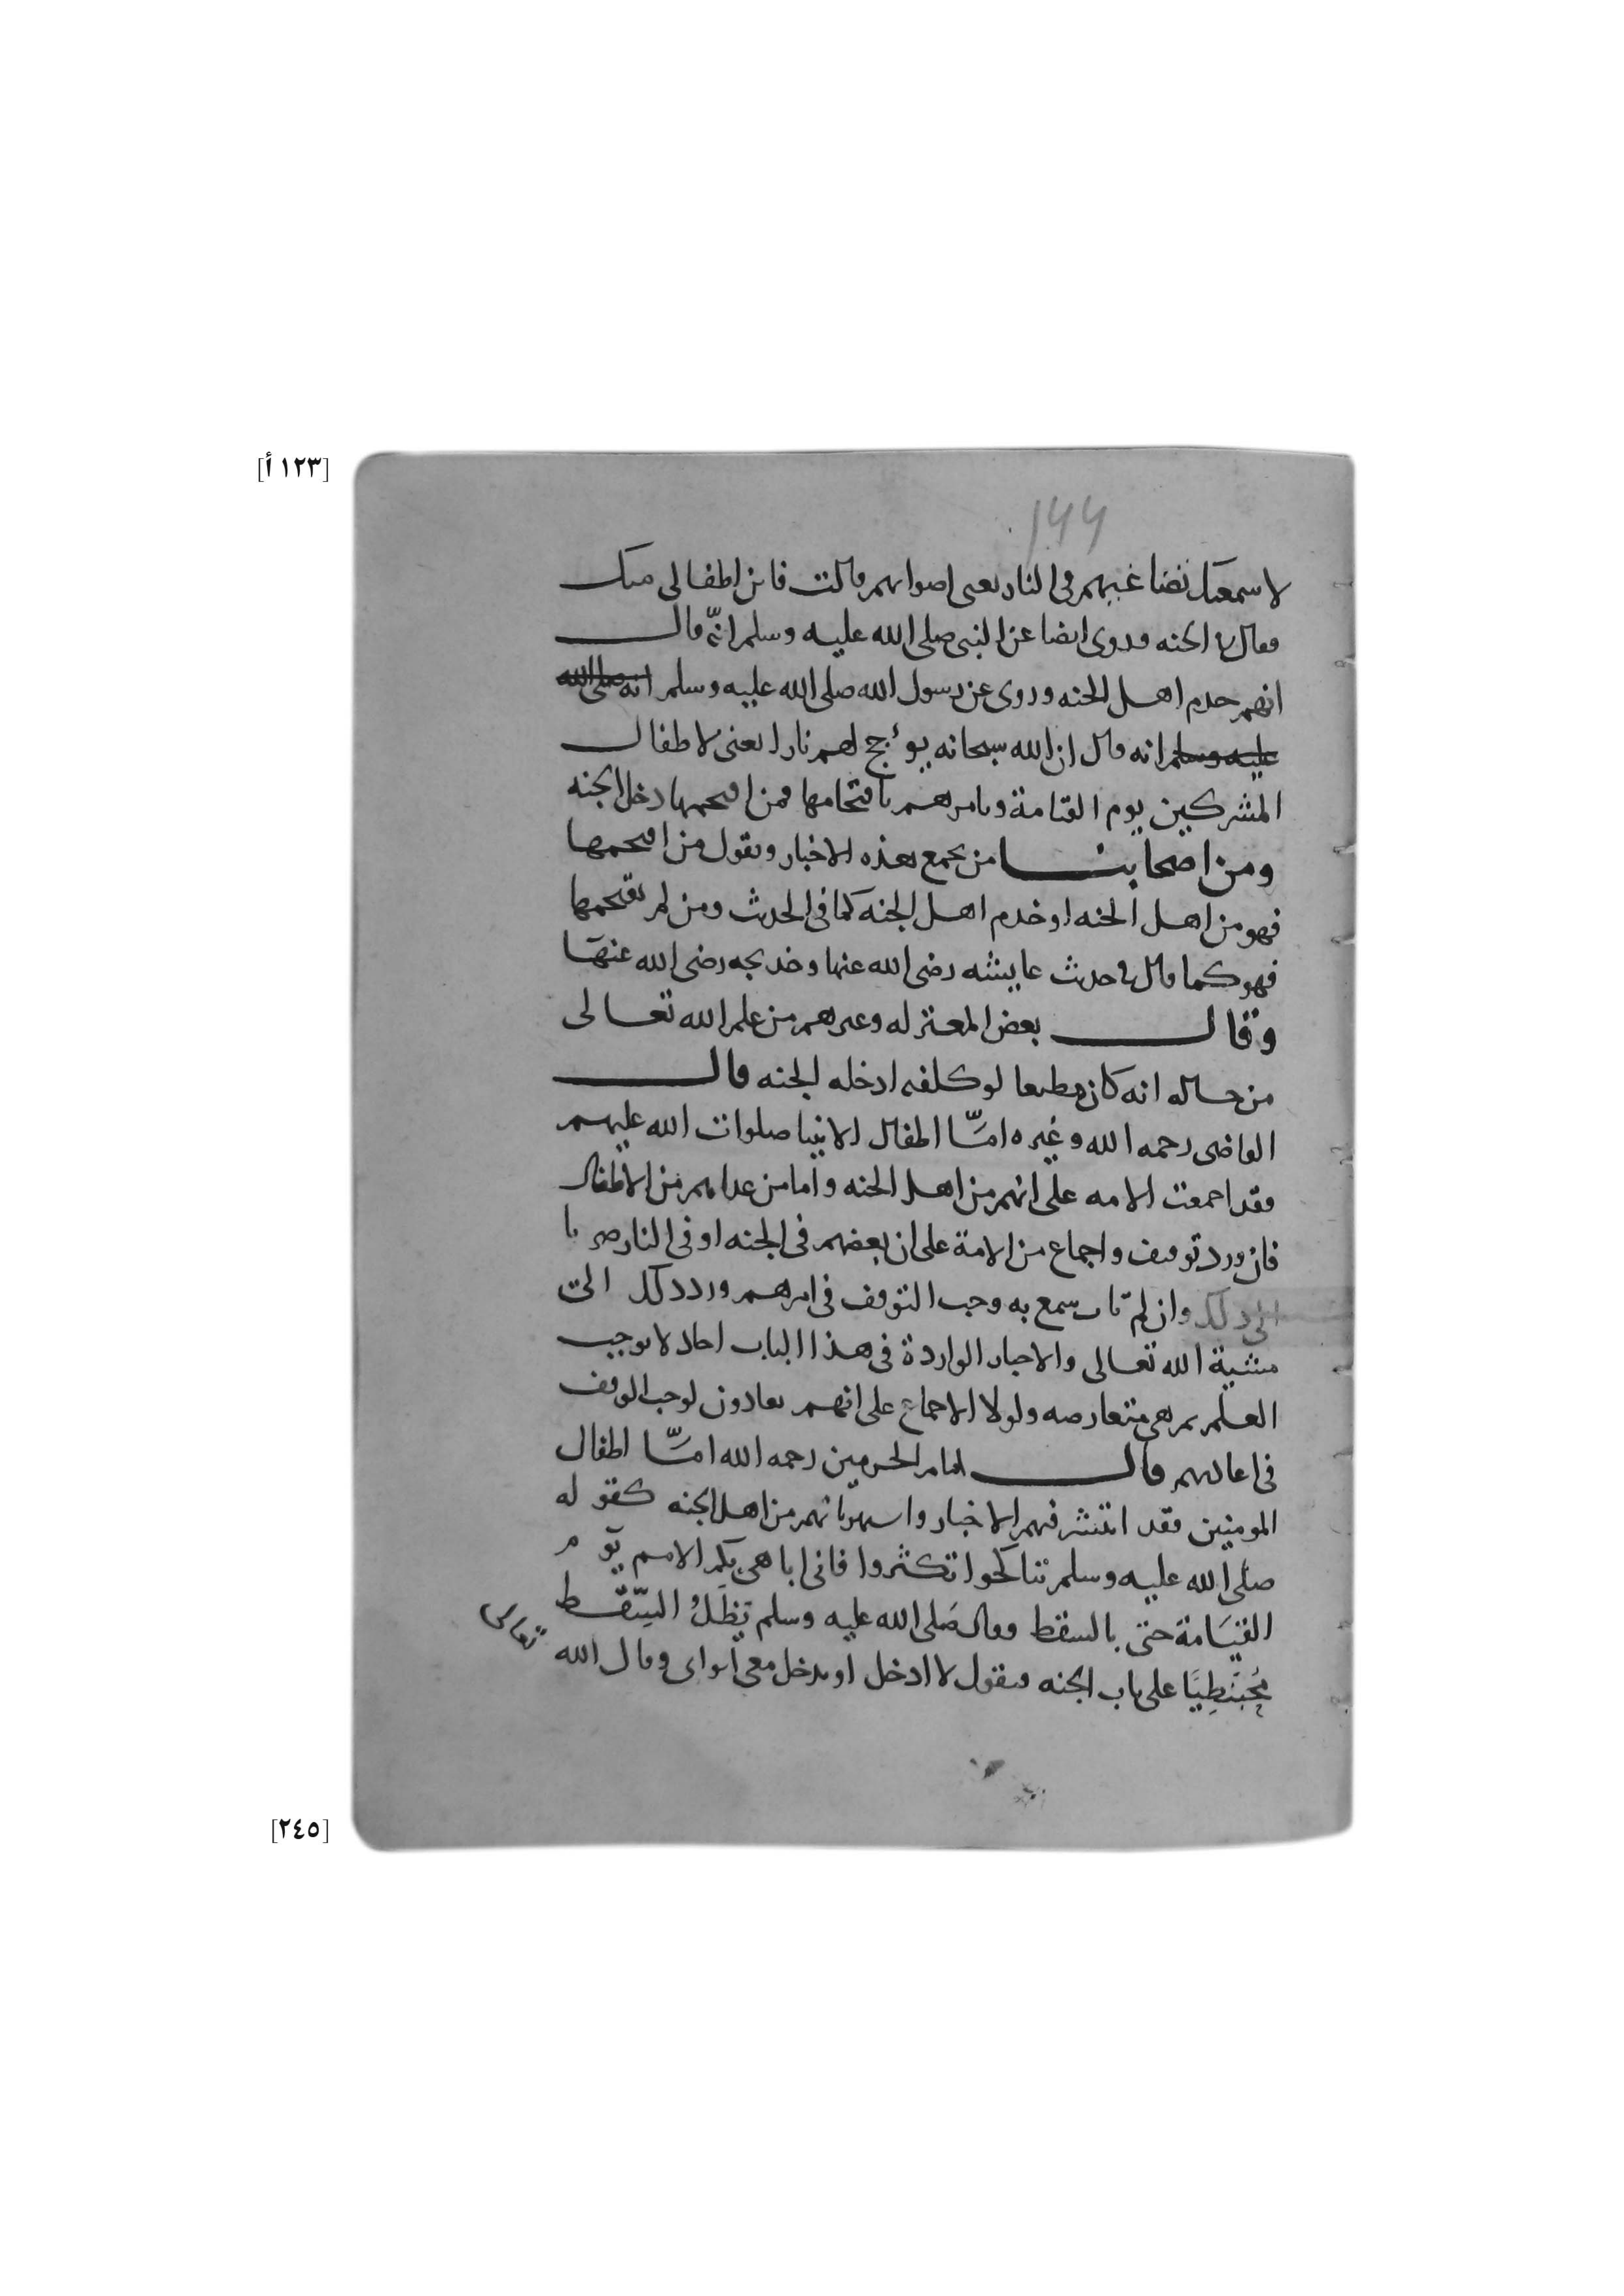 [١٢٣ أ]
١٢٣
لاسمعتك تضاغيهم في النار يعني اصواتهم قالت فاين اطفالي منك
فقال في الجنه وروي ايضا عن النبي صلى الله عليه وسلم انّه قال
انهم خدم اهل الجنه وروى عن رسول الله صلى الله عليه وسلم انه صلى الله
عليه وسلم انه قال ان الله سبحانه يؤجج لهم نارا يعني لاطفال
المشركين يوم القيامة ويامرهم باقتحامها فمن اقتحمها دخل الجنه
ومن اصحابنا من يجمع هذه الاخبار ويقول من اقتحمها
فهو من اهل الجنه او خدم اهل الجنه كما في الحديث ومن لم يقتحمها
فهو كما قال في حديث عايشه رضى الله عنها وخديجه رضى الله عنها
وقال بعض المعتزله وغيرهم من علم الله تعالى
من حاله انه كان مطيعا لو كلفه ادخله الجنه قال
القاضى رحمه الله وغيره امّا اطفال الانبيا صلوات الله عليهم
فقد اجمعت الامه على انهم من اهل الجنه واما من عداهم من الاطفال
فان ورد توقيف واجماع من الامة على ان بعضهم في الجنه او في النار صرنا
الى ذلك وان لم يات سمع به وجب التوقف في امرهم وردد ذلك الى
مشية الله تعالى والاخبار الواردة في هذا الباب احاد لا توجب
العلم ثم هي متعارضه ولولا الاجماع على انهم يعادون لوجب الوقف
في اعادتهم قال امام الحرمين رحمه الله امّا اطفال
المومنين فقد انتشر فيهم الاخبار واشتهر بانهم من اهل الجنه كقوله
صلى الله عليه وسلم تناكحوا تكثروا فانى اباهي بكم الامم يوم
القيَامة حتى بالسقط وقال صَلى الله عليه وسلم يَظَلُّ السِّقط
مُحْبَنطِيًا على باب الجنه فيقول لا ادخل او يدخل معى ابواى وقال الله تعالى
[٢٤٥]